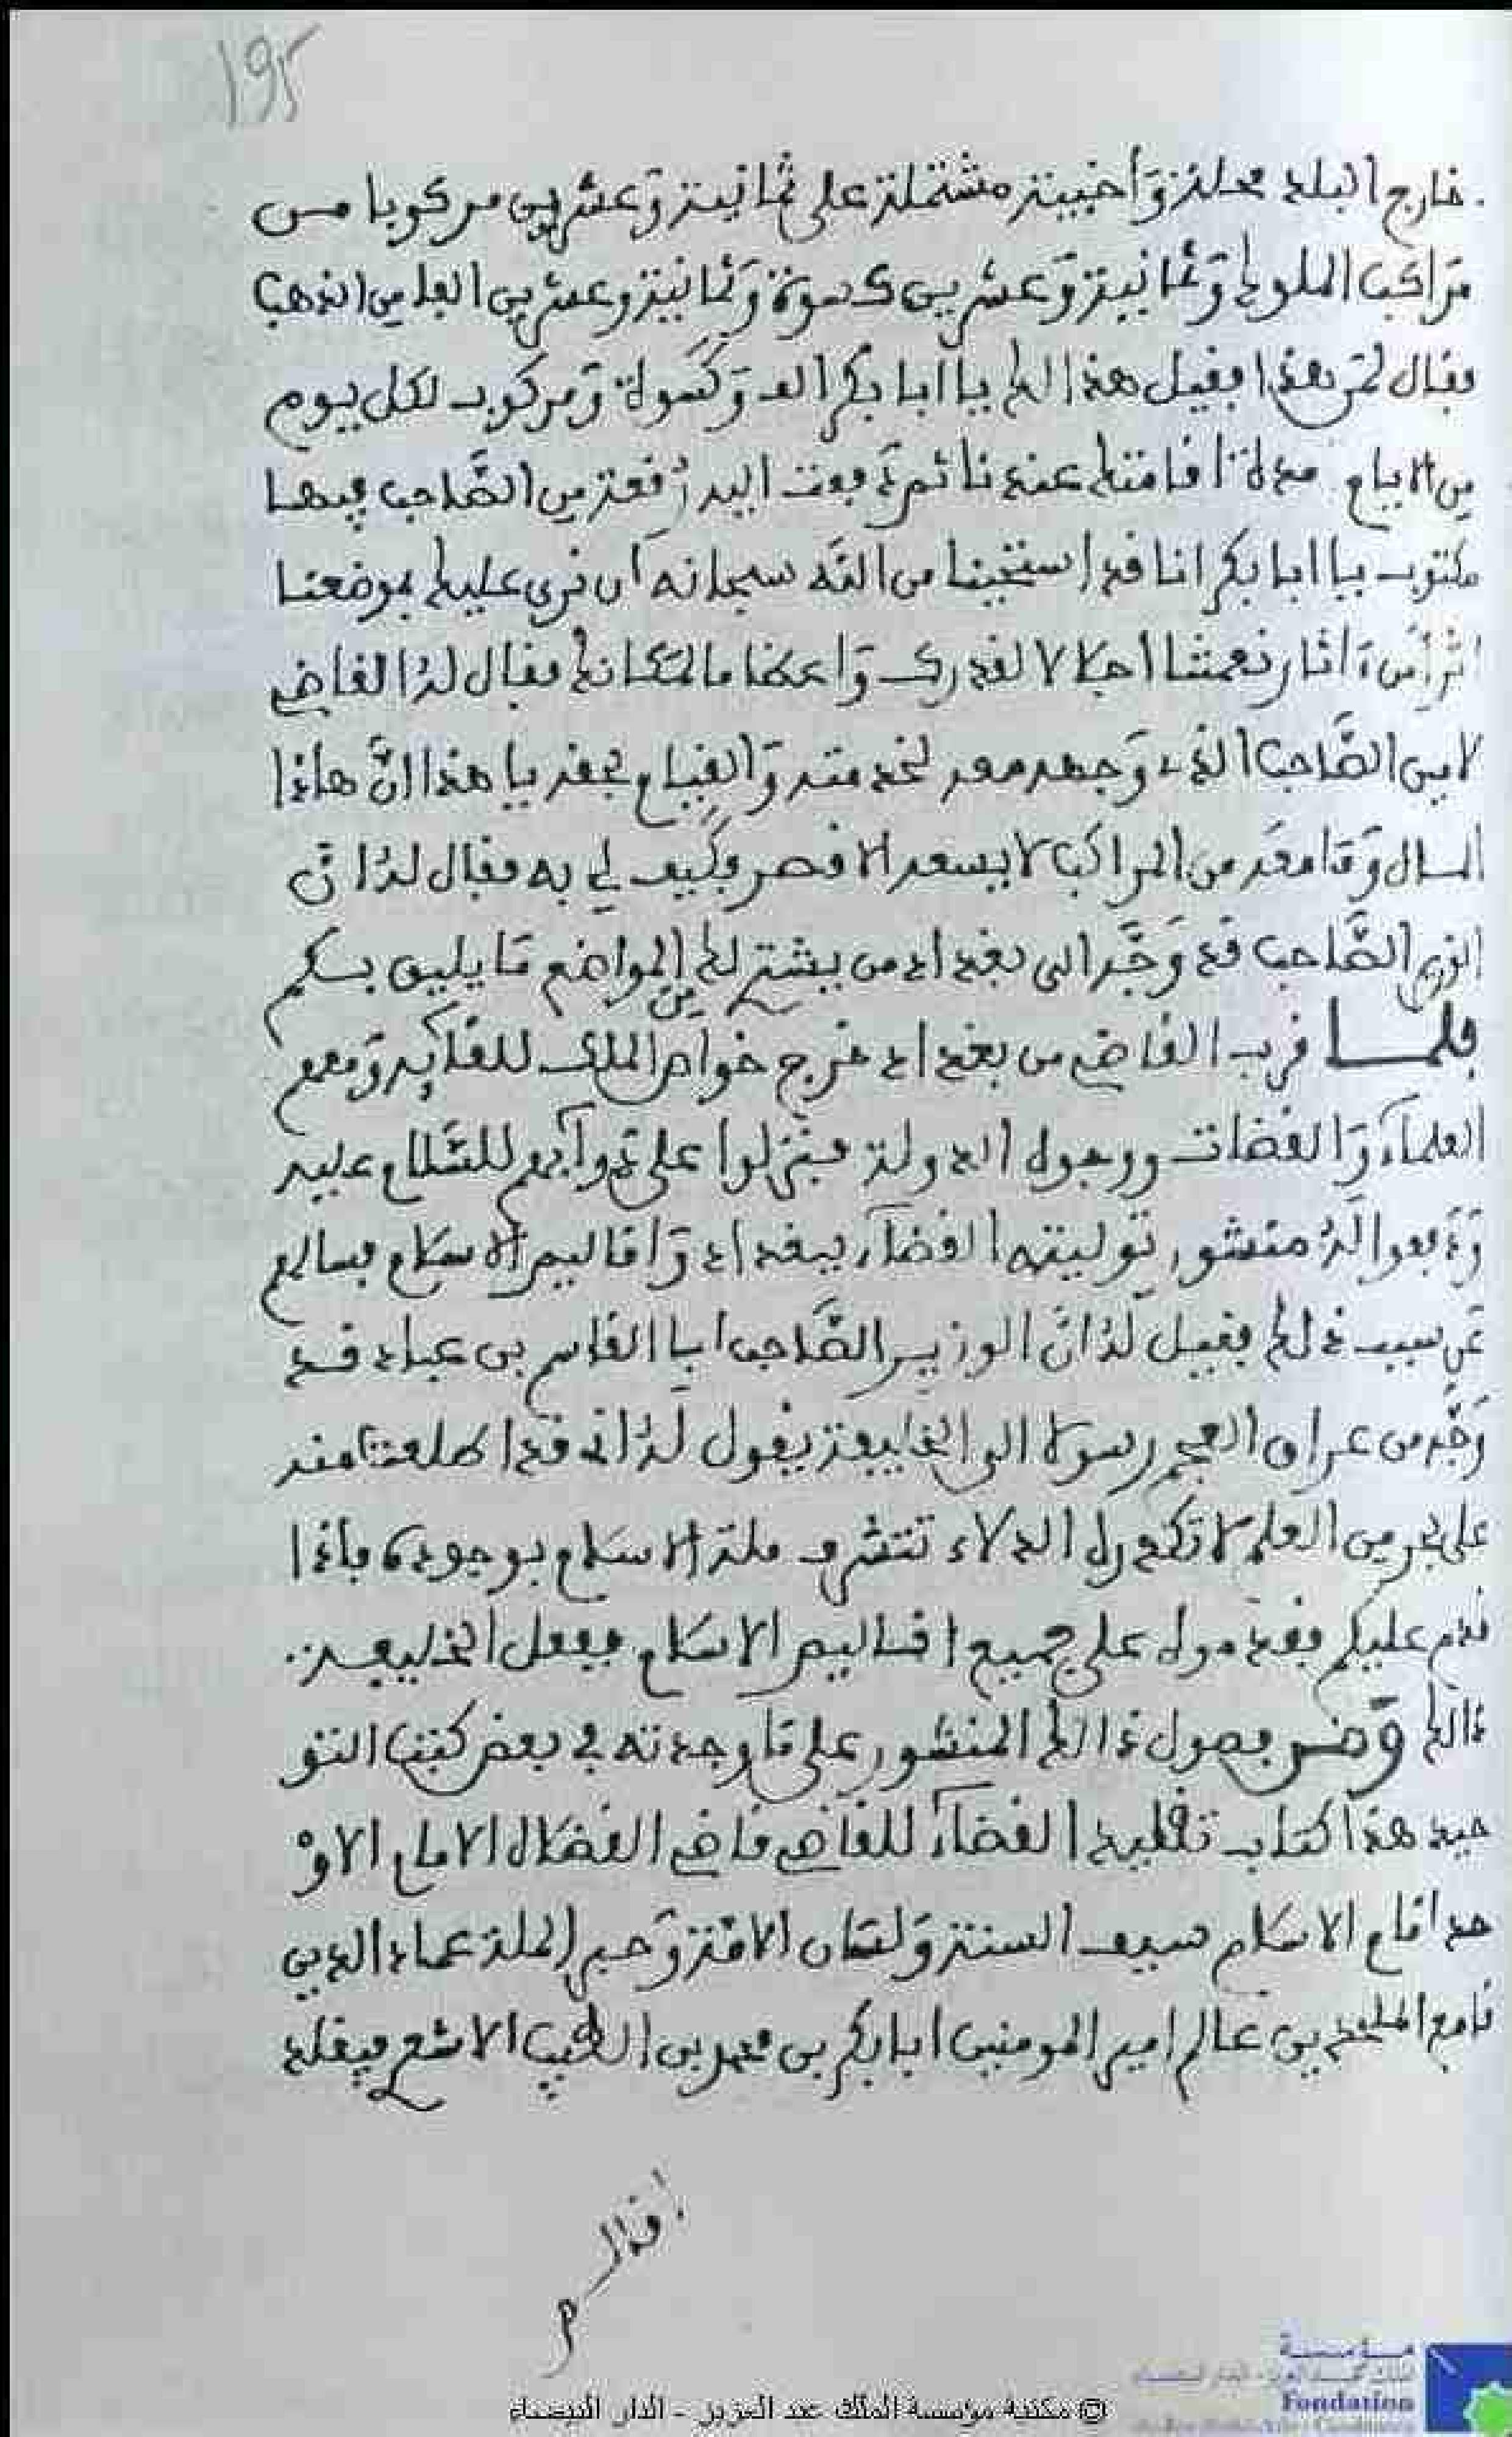 195
خارج البلد محلة وَأخبية مشتملة على ثمانية وَعشرين مركوبا من
مَراكب الملوك وَثمانية وَعشرين كسوة وَثمانية وعشرين ألفا من الذهب
فقال لمَن هذا فقيل هذا لك يا ابا بكر الف وَكسوة وَمركوب لكل يوم
من الايام مدة اقامتك عندنا ثم دَفعت اليه رُقعة من الصَّاحب فيها
مكتوب يا ابا بكر انا قد استحيينا من اللَّه سبحانه أن نرى عليك بموضعنا
اثرا من ءاثار نعمتنا اجلالا لقدرك وَاعظاما لمكانك فقال لهُ القاضي
لامين الصَّاحب الذي وَجهه معه لخدمته وَالقيام بحقه يا هذا انَّ هاذا
المال وَمَا معَه من المراكب لا يسعه الا قصر وكيف لي به فقال لهُ ان
الوزير الصَّاحب قد وَجَّه الى بغداد من يشتر لك من المواضع مَا يليق بكم
فلمـا قرب القاضي من بغداد خرج خواص الملك للقآيه وَمعهم
العلمآء وَالقضات ووجوه الدولة فنزلوا على دَوآبهم للسَّلام عليه
وَدَفعوا لَهُ منشور تَوليته القضآء ببغداد وَاقاليم الاسلام فسالهم
عَن سبب ذلك فقيل لَهُ انَّ الوزير الصَّاحب ابا القاسم بن عباد قد
وَجَّه من عراق العجم رسولا الى الخليفة يقول لَهُ انه قد اطلعت منه
على بحر من العلم لا تكدره الدلاء تتشرف ملة الاسلام بوجوده فاذا
قدم عليكم فقد موله على جميع اقاليم الاسلام ففعل الخليفة
ذالك وَنص فصول ذالك المنشور على مَا وجدته في بعض كتب التو
حيد هذا كتاب تقليد القضآء للقاضي قاضي القضاة الامام الاوْ
حد امام الاسلام سيف السنة وَلسَان الامَّة وَحبر الملة عماد الدين
قامع الملحدين عَالم امير المومنين ابا بكر بن محمد بن الطيب الاشعري فقلد
© مكتبة مؤسسة الملك عبد العزيز - الدار البيضاء
مؤسسة
Fondation